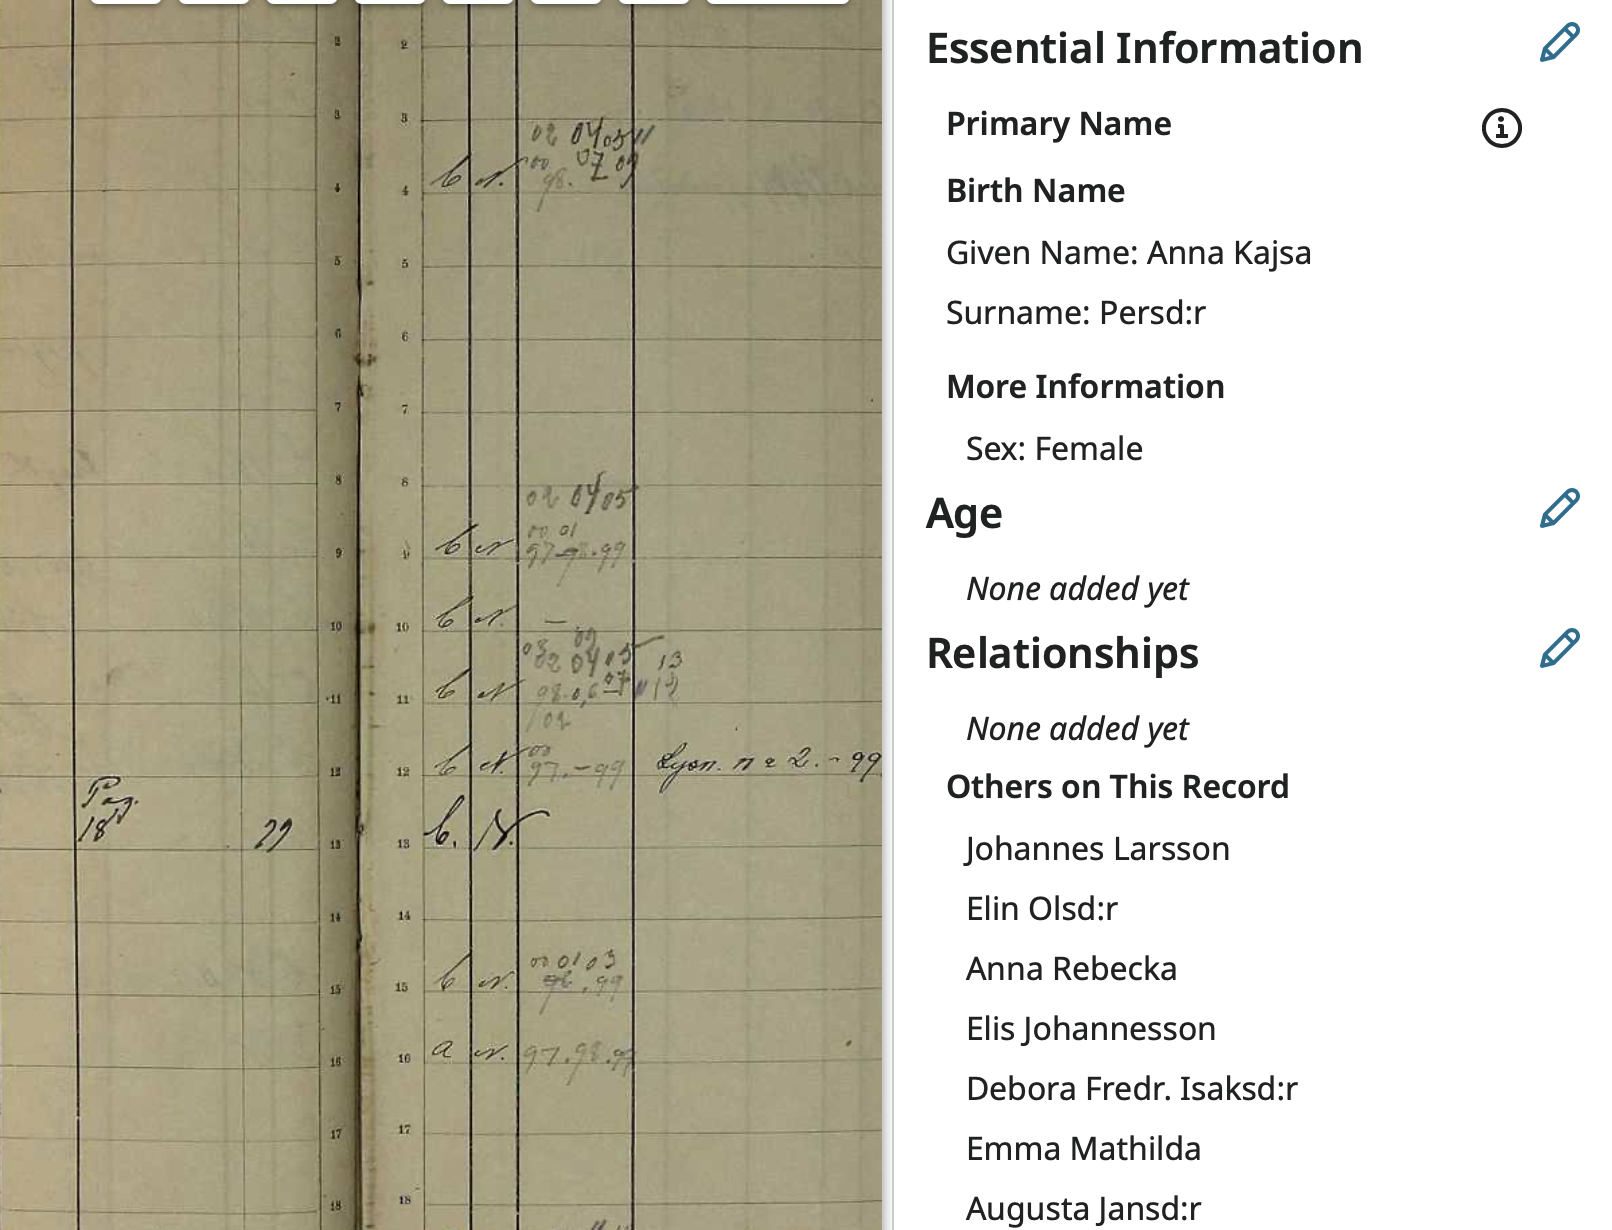 2 2
3 3
02 04 05 11
00 07 09
98.
4 C N. 4
5 5
6 6
7 7
8 8
02 04 05
00 01
9 C N 97-98.99
10 10 C N. —
02 04 05 13
11 11 C N
12 12 C N. 97.-99 Lysn. n = 2. - 99
00
Pag.
18 29 13 13 C. N.
14 14
00 01 03
15 15 C N. 98.99
16 16 a N. 97.98.99
17 17
18 18
Essential Information
Primary Name
Birth Name
Given Name: Anna Kajsa
Surname: Persd:r
More Information
Sex: Female
Age
None added yet
Relationships
None added yet
Others on This Record
Johannes Larsson
Elin Olsd:r
Anna Rebecka
Elis Johannesson
Debora Fredr. Isaksd:r
Emma Mathilda
Augusta Jansd:r